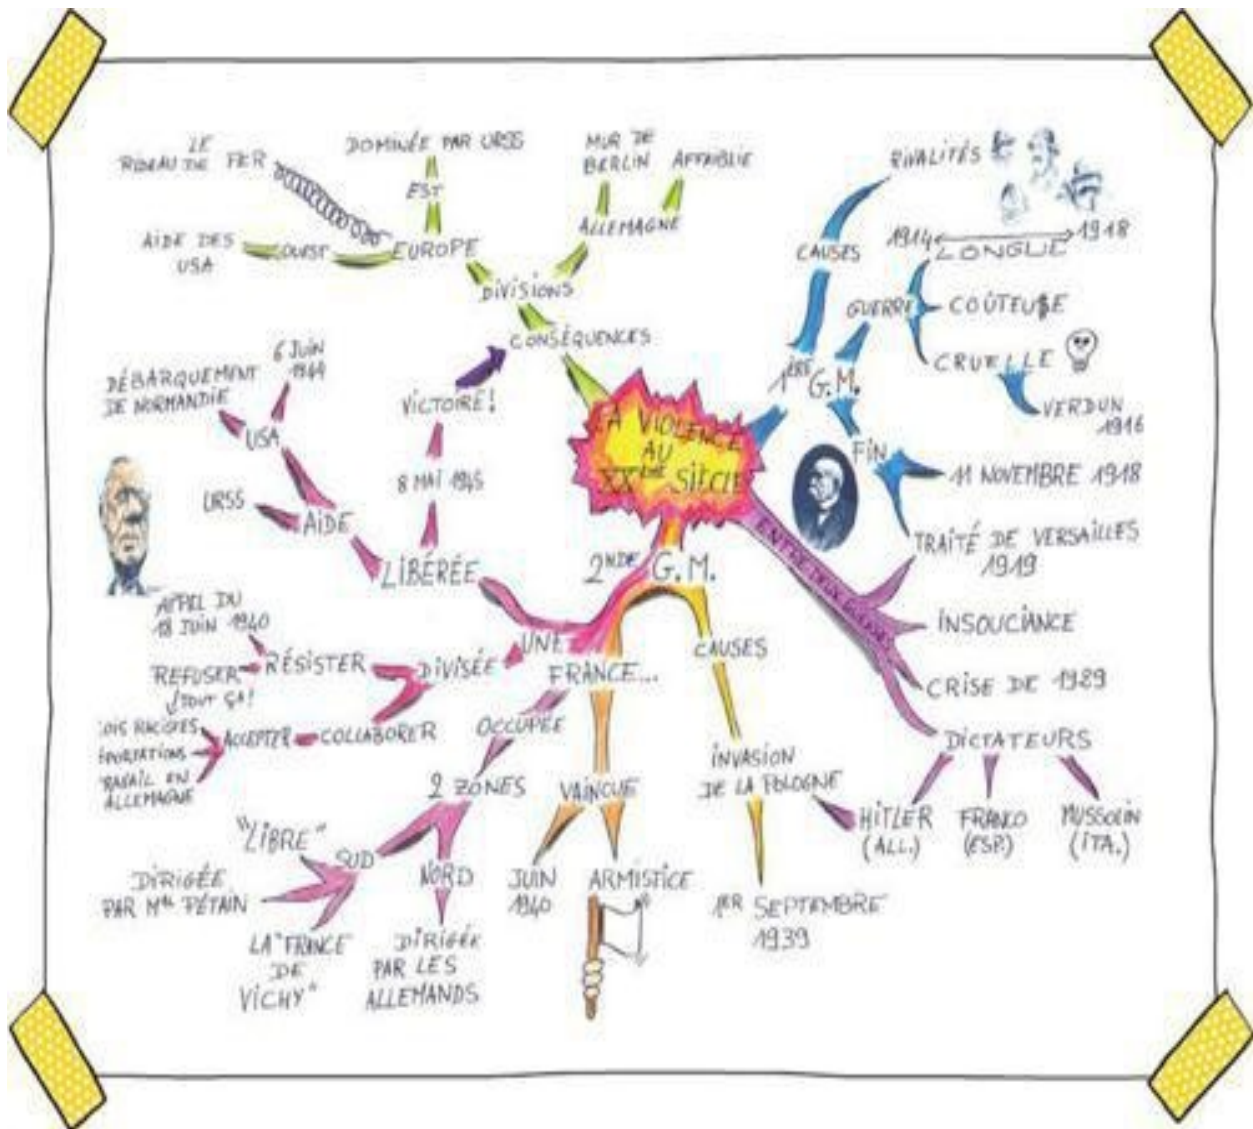 LA VIOLENCE
AU
XXème SIÈCLE
1ÈRE G.M.
CAUSES
RIVALITÉS
GUERRE
1914
1918
LONGUE
COÛTEUSE
CRUELLE
VERDUN
1916
FIN
11 NOVEMBRE 1918
TRAITÉ DE VERSAILLES
1919
ENTRE DEUX GUERRES
INSOUCIANCE
CRISE DE 1929
DICTATEURS
HITLER
(ALL.)
FRANCO
(ESP.)
MUSSOLIN
(ITA.)
2NDE G.M.
CAUSES
INVASION
DE LA POLOGNE
1ER SEPTEMBRE
1939
UNE
FRANCE...
VAINCUE
JUIN
1940
ARMISTICE
OCCUPÉE
2 ZONES
NORD
DIRIGÉE
PAR LES
ALLEMANDS
SUD
"LIBRE"
DIRIGÉE
PAR Mal PÉTAIN
LA "FRANCE
DE
VICHY"
DIVISÉE
RÉSISTER
APPEL DU
18 JUIN 1940
REFUSER
TOUT ÇA!
COLLABORER
ACCEPTER
OIS RACISTES
PORTATIONS
RAVAIL EN
ALLEMAGNE
LIBÉRÉE
AIDE
URSS
USA
DÉBARQUEMENT
DE NORMANDIE
6 JUIN
1944
8 MAI 1945
VICTOIRE!
CONSÉQUENCES
DIVISIONS
EUROPE
LE
RIDEAU DE FER
EST
DOMINÉE PAR URSS
OUEST
AIDE DES
USA
ALLEMAGNE
MUR DE
BERLIN
AFFAIBLIE